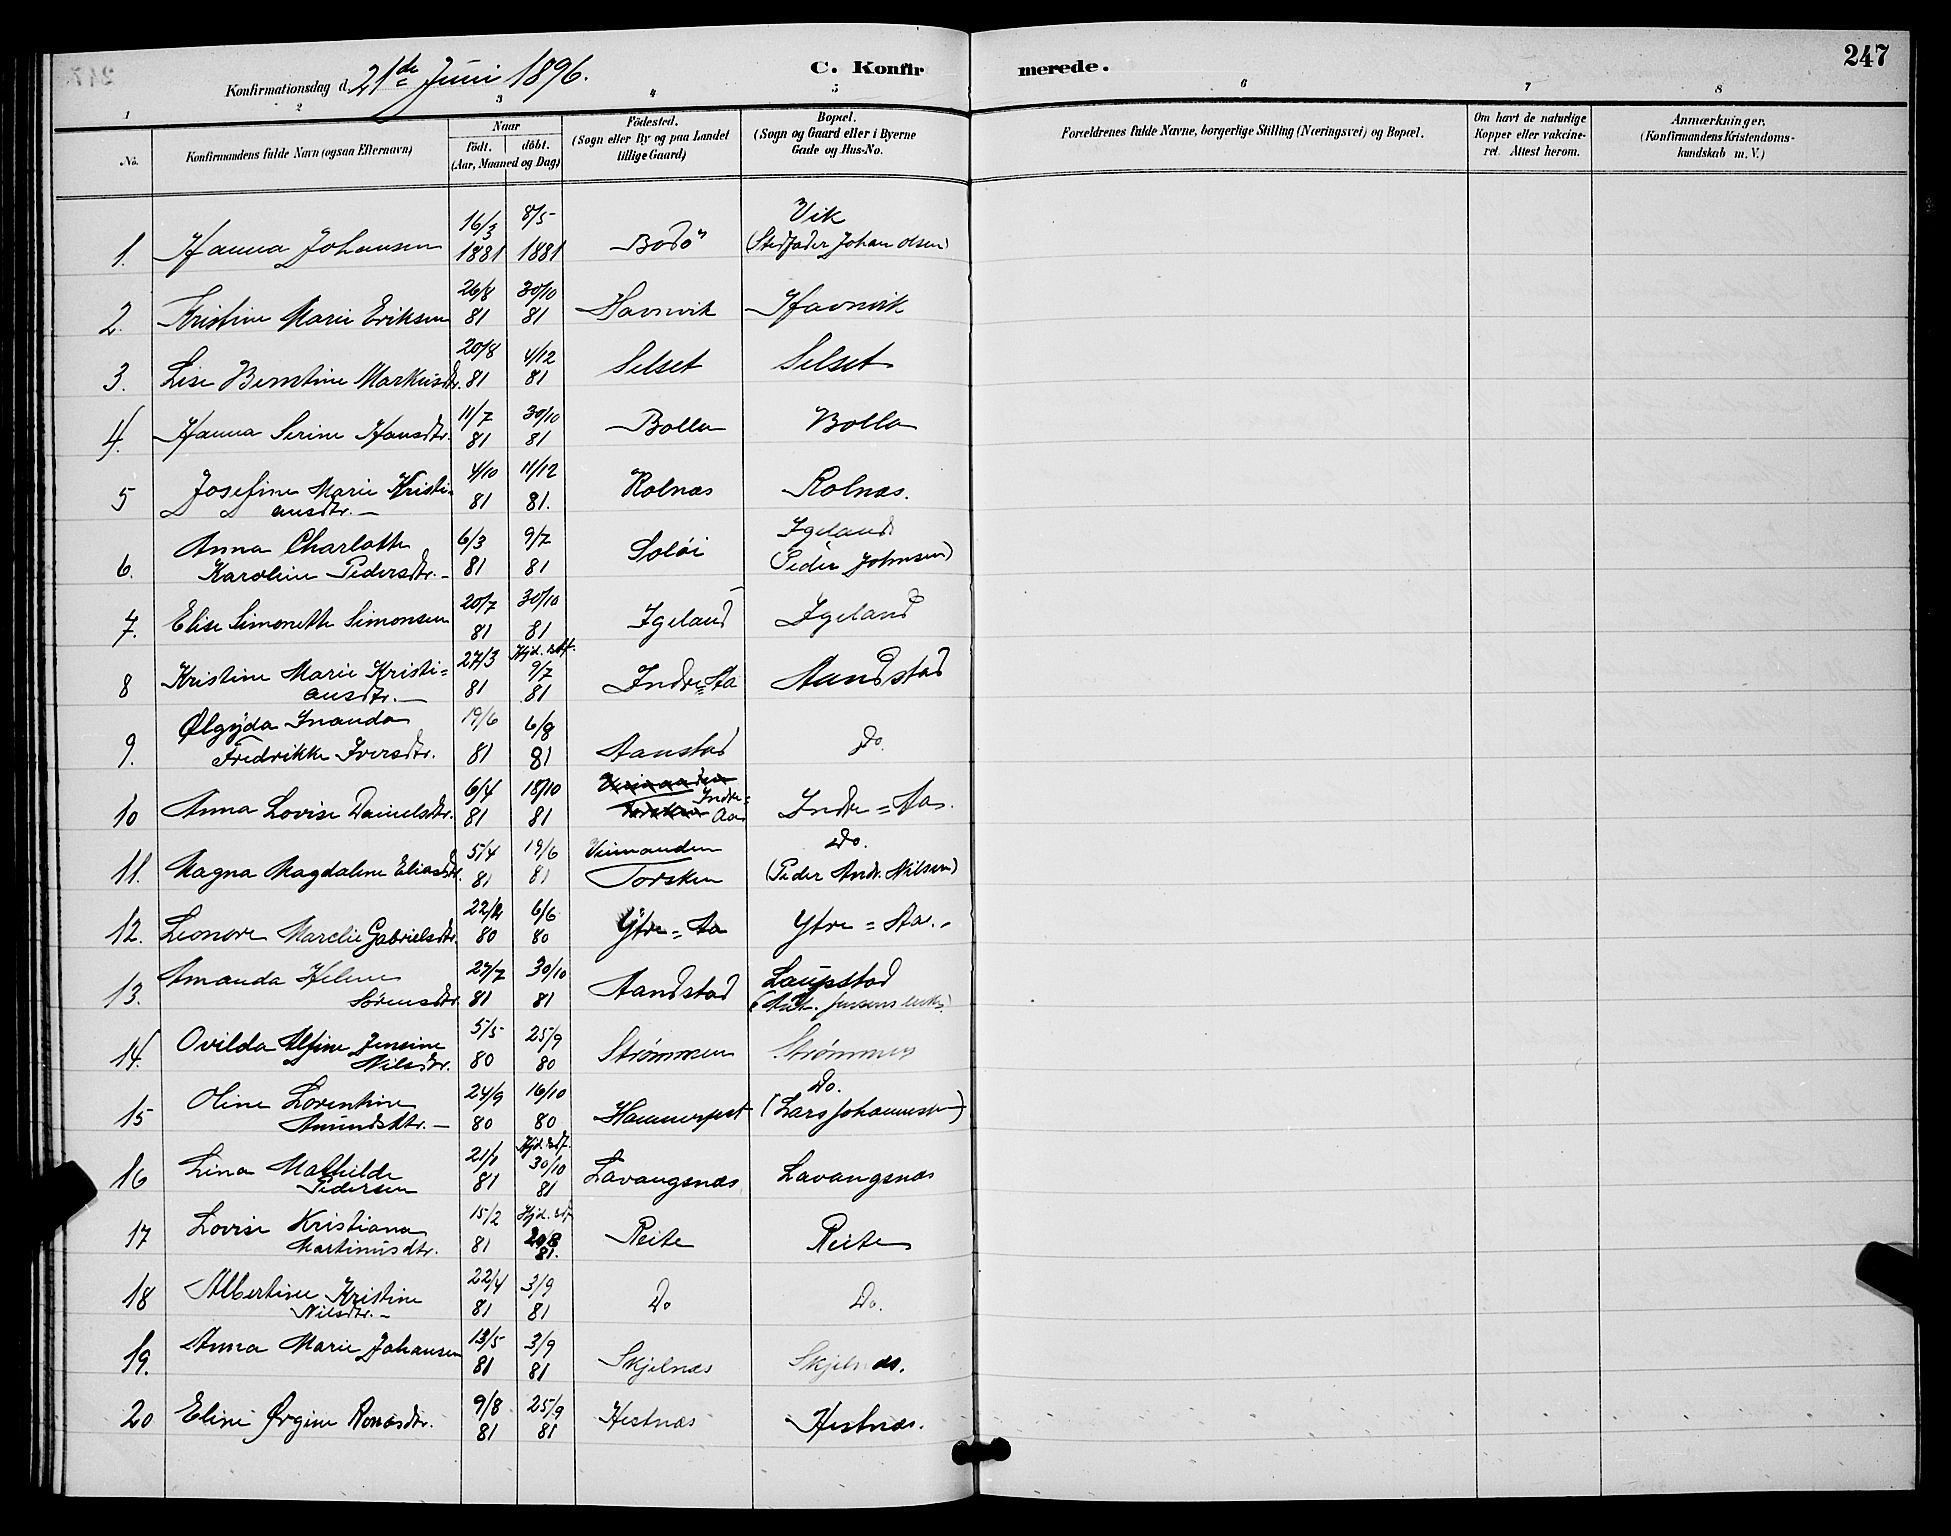 247
Konfirmationsdag d. 21de Juni 1896.
C. Konfirmerede.
1 2 3 4 5 6 7 8
No.
Konfirmandens fulde Navn (ogsaa Efternavn)
Naar
födt. döbt.
(Aar, Maaned og Dag)
Födested.
(Sogn eller By og paa Landet
tillige Gaard)
Bopæl.
(Sogn og Gaard eller i Byerne
Gade og Hus-No.
Forældrenes fulde Navne, borgerlige Stilling (Næringsvei) og Bopæl.
Om havt de naturlige
Kopper eller vakcine-
ret. Attest herom.
Anmærkninger.
(Konfirmandens Kristendoms-
kundskab m. V.)
16/3 8/5 Vik
1. Hanna Johansen 1881 1881 Bodö (Stedfader Johan Olsen)
26/8 30/10
2. Kristine Marie Eriksen 81 81 Havnvik Havnvik
20/8 4/12
3. Lise Berntine Markusdtr. 81 81 Selset Selset
11/7 30/10
4. Hanna Serine Hansdtr. 81 81 Bolla Bolla
4/10 11/12
5 Josefine Marie Kristi- 81 81. Rolnæs Rolnæs.
ansdtr. —
Anna Charlotte 6/3 9/7 Soløi Igeland
6. Karoline Pedersdtr. - 81 81 (Peder Johnsen)
20/7 30/10
7. Elise Simonette Simonsen 81 81 Igeland Igeland
27/3 Hjd. stf. 9/7
8 Kristine Marie Kristi= 81 81 Indre=Aa Aandstad
ansdtr. —
Ølgyda Inanda 19/6 6/8
9. Fredrikke Iversdtr. 81 81 Aanstad Do.
6/4 18/10 Indre=
10 Anna Lovise Danielsdtr. 81 81 Aa Indre = Aa.
5/4 19/6 Veimanden Do.
11. Magna Magdalene Eliasdtr. 81 81 Torsken (Peder Andr. Nilsen)
6/6
12. Leonore Marelie Gabrielsdtr. 80 80 Ytre = Aa Ytre = Aa. -
Amanda Helene 27/7 30/10 Laupstad
13. Sørensdtr. 81 81 Aandstad
Ovilda Alfine Jensine 5/5 25/9
14. Nilsdtr. 80 80 Strømmen Strømmen
Oline Lorentine 24/9 16/10 Do.
15 Amundsdtr. — 80 80 (Lars Johannessen)
Lina Mathilde Hjd. stf. 30/10
16 Pedersen 81 81 Lavangsnæs Lavangsnæs
Lovise Kristiana 15/2 Hjd. stf.
17 Martinusdtr. 81 20/8 81. Reite Reite
Albertine Kristine 22/4 3/9
18 Nilsdtr. - 81 81 Do Do.
13/5 3/9
19. Anna Marie Johansen 81 81 Skjelnæs Skjelnæs.
9/8 25/9
20 Eline Ørgine Ronasdtr. 81 81 Hestnæs Hestnæs.